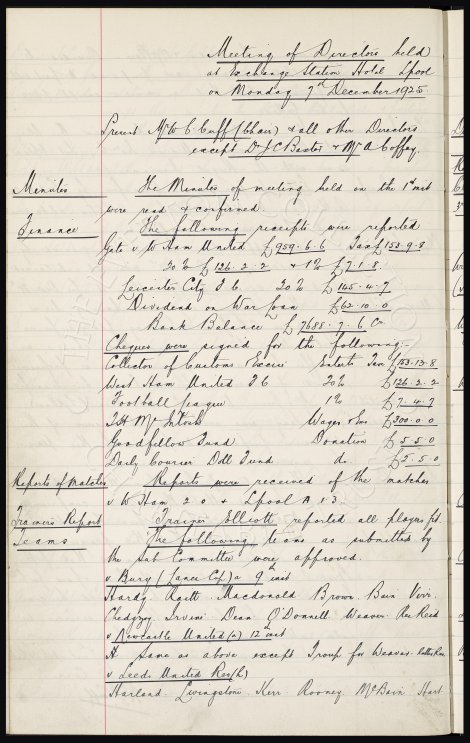 Meeting of Directors held
at Exchange Station Hotel Lpool
on Monday 7th December 1925
Present Mr W C Cuff (Chair) & all other Directors
except Dr J C Baxter & Mr A Coffey.
Minutes
The Minutes of meeting held on the 1st inst
were read & confirmed.
Finance
The following receipts were reported
Gate v W Ham United £959.6.6 Tax £153.9.8
20% £126.2.2 & 1% £7.1.8
Leicester City F C 20% £145.4.7
Dividend on War Loan £62.10.0
Bank Balance £7688.7.6 Cr
Cheques were signed for the following:-
Collector of Customs & Excise Enterts Tax £153.13.8
West Ham United F C 20% £126.2.2
Football League 1% £7.4.7
T H McIntosh Wages & Ins £300.0.0
Goodfellow Fund Donation £5.5.0
Daily Courier Doll Fund do £5.5.0
Reports of Matches
Reports were received of the matches
v W Ham 2 0 & Lpool A 5 3
Trainers Report
Trainer Elliott reported all players fit.
Teams
The following teams as submitted by
the Sub Committee were approved.
v Bury (Lancs Cup) a 9th inst
Hardy. Raitt. Macdonald Brown. Bain Virr.
Chedgzoy Irvine Dean O'Donnell Weaver. Res Reid
v Newcastle United (a) 12th inst
A Same as above except Troup for Weaver.
v Leeds United Res (h)
Harland. Livingstone Kerr Rooney McBain Hart